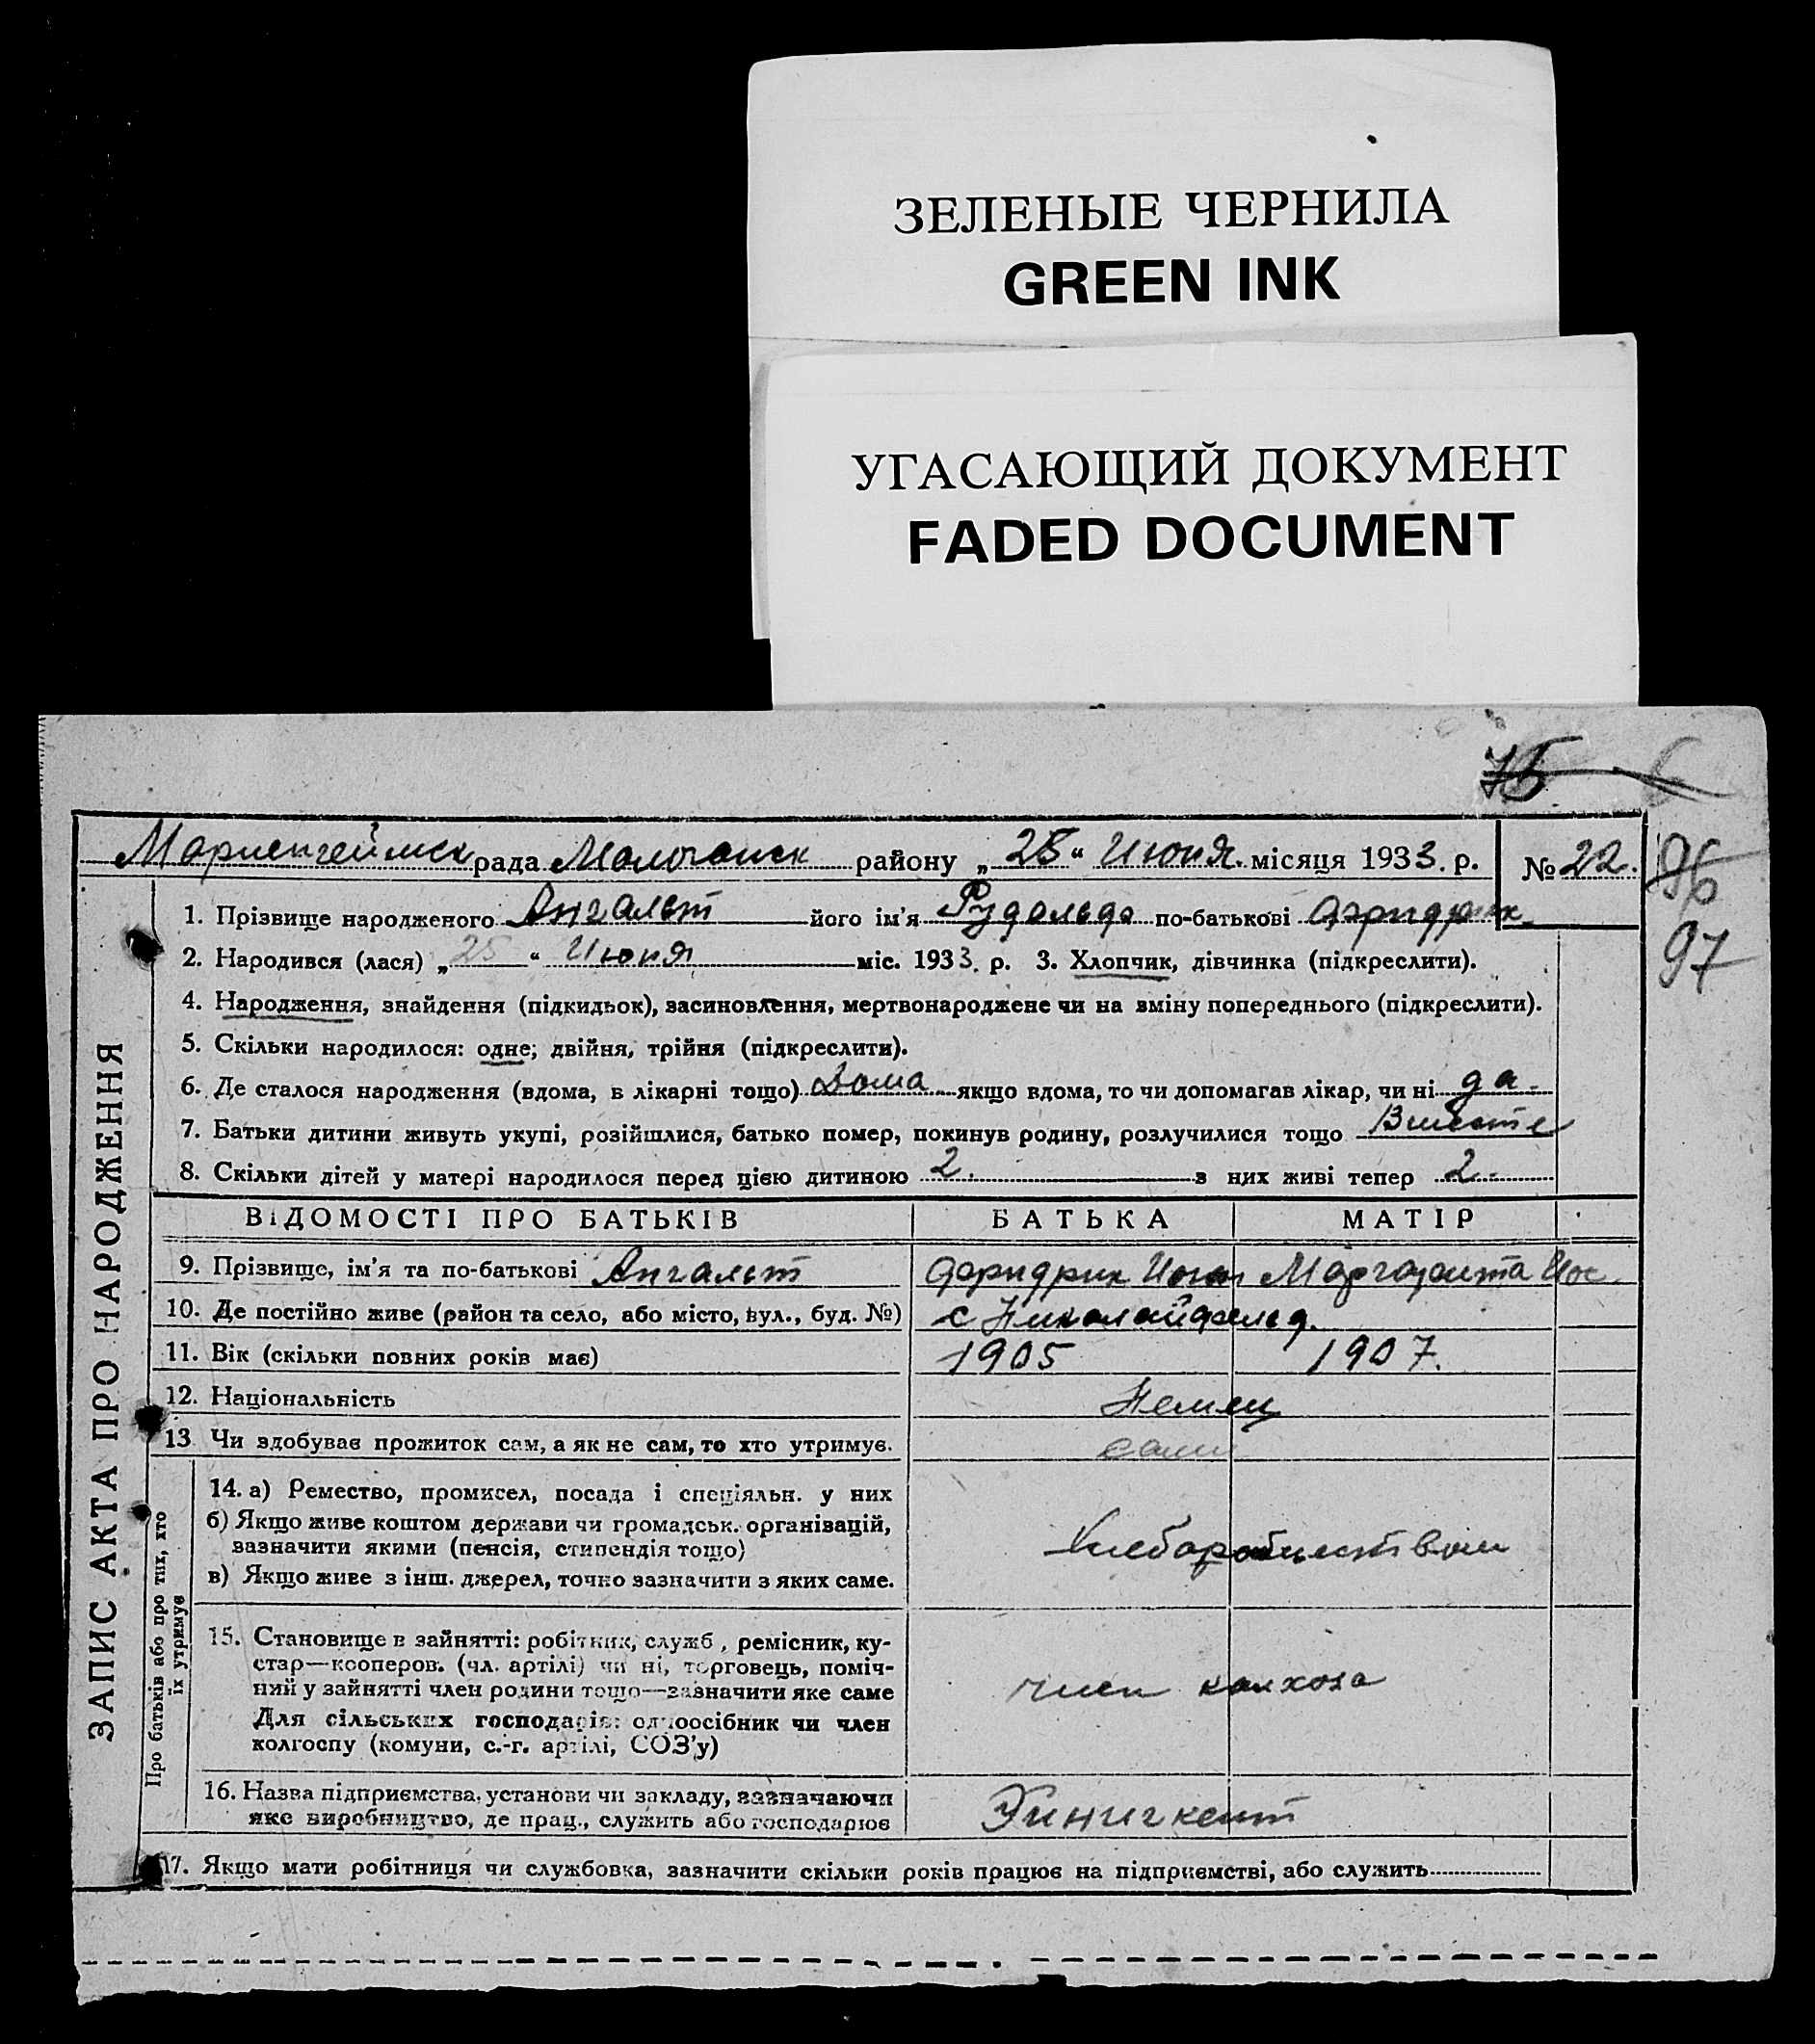 ЗЕЛЕНЫЕ ЧЕРНИЛА
GREEN INK
УГАСАЮЩИЙ ДОКУМЕНТ
FADED DOCUMENT
75
Мариенгеймск рада Молочанск району „28“ Июня місяця 1933. р. № 22.
96
97
ЗАПИС АКТА ПРО НАРОДЖЕННЯ
1. Прізвище народженого Ангальт його ім'я Рудольф по-батькові Фридрих
2. Народився (лася) „25“ Июня міс. 1933. р. 3. Хлопчик, дівчинка (підкреслити).
4. Народження, знайдення (підкидьок), засиновлення, мертвонароджене чи на зміну попереднього (підкреслити).
5. Скільки народилося: одне; двійня, трійня (підкреслити).
6. Де сталося народження (вдома, в лікарні тощо) Дома якщо вдома, то чи допомагав лікар, чи ні да.
7. Батьки дитини живуть укупі, розійшлися, батько помер, покинув родину, розлучилися тощо Вместе
8. Скільки дітей у матері народилося перед цією дитиною 2. з них живі тепер 2.
ВІДОМОСТІ ПРО БАТЬКІВ БАТЬКА МАТІР
9. Прізвище, ім'я та по-батькові Ангальт Фридрих Иоган Маргарита Иос.
10. Де постійно живе (район та село, або місто, вул., буд. №) с Николайфельд.
11. Вік (скільки повних років має) 1905 1907.
12. Національність Немец
13 Чи здобуває прожиток сам, а як не сам, то хто утримує. сами
Про батьків або про тих, хто
їх утримує
14. а) Ремество, промисел, посада і спеціяльн. у них
б) Якщо живе коштом держави чи громадськ. організацій,
зазначити якими (пенсія, стипендія тощо)
в) Якщо живе з інш. джерел, точно зазначити з яких саме.
15. Становище в зайнятті: робітник, служб., ремісник, ку-
стар—кооперов. (чл. артілі) чи ні, торговець, поміч-
ний у зайнятті член родини тощо—зазначити яке саме
Для сільських господарів: одноосібник чи член
колгоспу (комуни, с.-г. артілі, СОЗ'у)
член колхоза
16. Назва підприємства, установи чи закладу, зазначаючи
яке виробництво, де прац., служить або господарює
17. Якщо мати робітниця чи службовка, зазначити скільки років працює на підприємстві, або служить